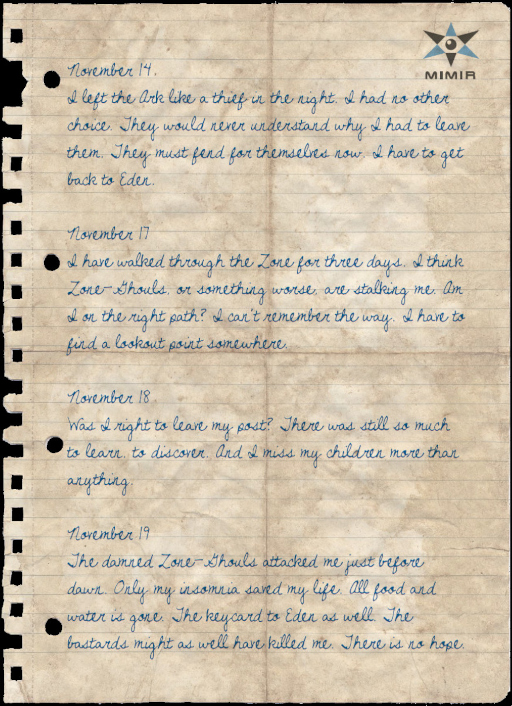 MIMIR
November 14.
I left the Ark like a thief in the night. I had no other
choice. They would never understand why I had to leave
them. They must fend for themselves now. I have to get
back to Eden.
November 17
I have walked through the Zone for three days. I think
Zone-Ghouls, or something worse, are stalking me. Am
I on the right path? I can't remember the way. I have to
find a lookout point somewhere.
November 18
Was I right to leave my post? There was still so much
to learn, to discover. And I miss my children more than
anything.
November 19
The damned Zone-Ghouls attacked me just before
dawn. Only my insomnia saved my life. All food and
water is gone. The keycard to Eden as well. The
bastards might as well have killed me. There is no hope.